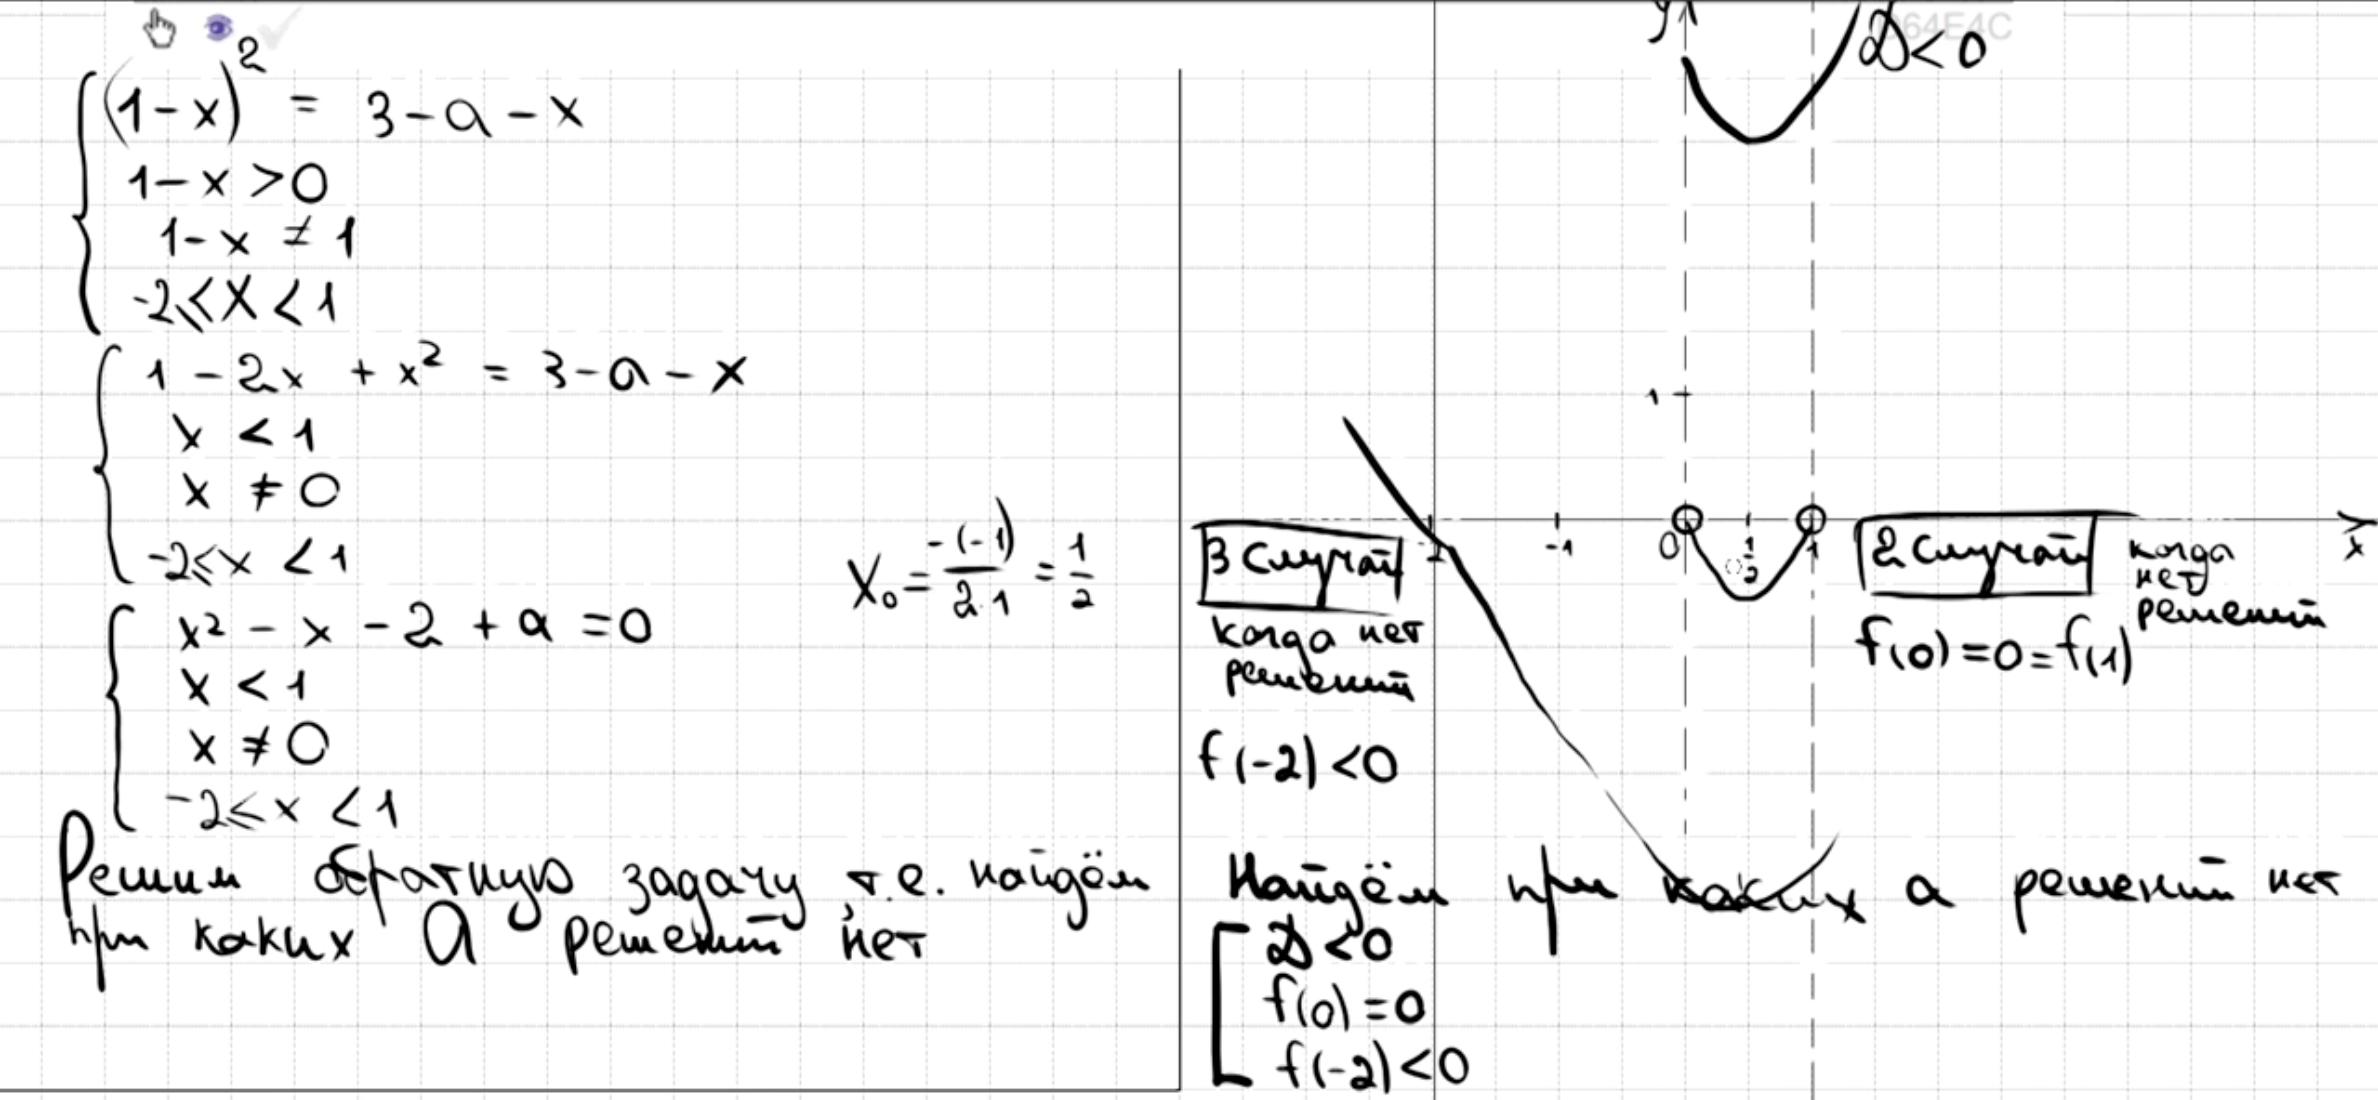 (1-x)² = 3-a-x
1-x>0
1-x ≠ 1
-2≤x<1
1-2x+x² = 3-a-x
x<1
x≠0
-2≤x<1
x²-x-2+a=0
x<1
x≠0
-2≤x<1
x₀ = -(-1)/2·1 = 1/2
Решим обратную задачу т.е. найдём
при каких a решений нет
y
D64E4C
D<0
1
-2
-1
0
1/2
1
x
3 случай
когда нет
решений
f(-2)<0
2 случай
когда
нет
решений
f(0)=0=f(1)
Найдём при каких a решений нет
D<0
f(0)=0
f(-2)<0